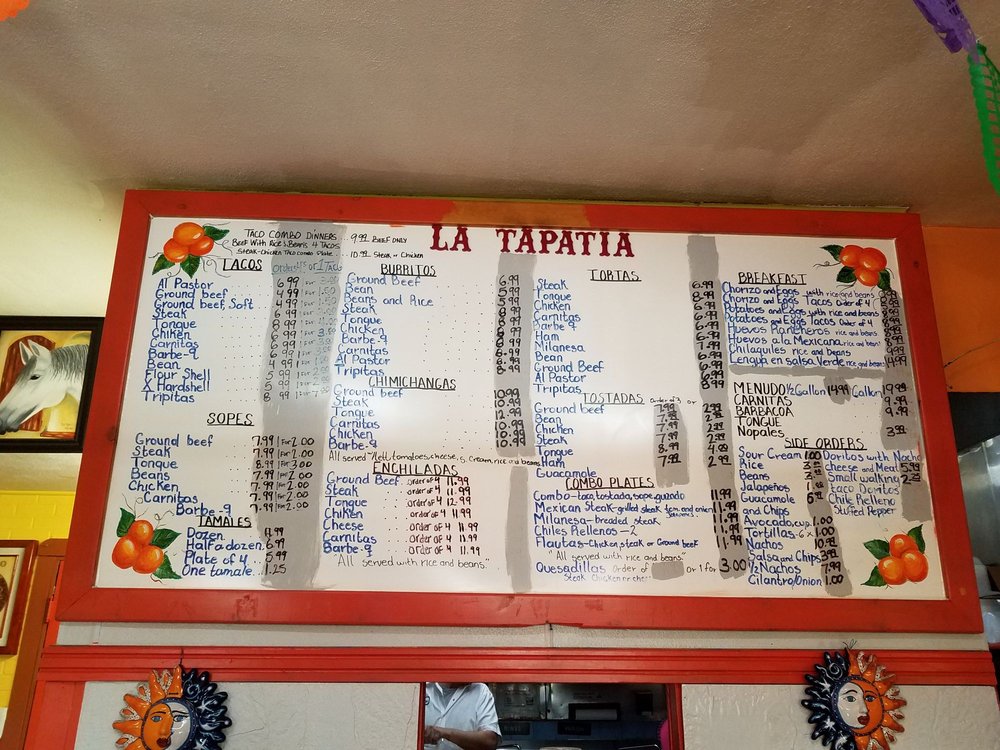 LA TAPATIA
TACO COMBO DINNERS... 9.99 BEEF ONLY
Beef With Rice & Beans 4 TACOS
Steak-Chicken Taco combo Plate... 10.99 Steak or Chicken
TACOS
Al Pastor
Ground beef
Ground beef, Soft
Steak
Tongue
Chiken
Carnitas
Barbe-q
Bean
Flour Shell
X Hardshell
Tripitas
SOPES
Ground beef 7.99 1 For 2.00
Steak 7.99 1 For 2.00
Tongue 8.99 1 For 3.00
Beans 7.99 1 For 2.00
Chicken 7.99 1 For 2.00
Carnitas 7.99 1 For 2.00
Barbe-q 7.99 1 For 2.00
TAMALES
Dozen 11.99
Half a dozen 6.99
Plate of 4 5.99
One tamale 1.25
BURRITOS
Ground Beef 6.99
Bean 5.99
Beans and Rice
Steak
Tongue
Chicken
Barbe-q
Carnitas
Al Pastor 6.99
Tripitas 8.99
CHIMICHANGAS
Ground beef 10.99
Steak 10.99
Tongue 12.99
Carnitas 10.99
Chicken 10.99
Barbe-q 10.99
All served w/lett, tomatoes, cheese, s. cream, rice and beans
ENCHILADAS
Ground Beef order of 4 11.99
Steak order of 4 11.99
Tongue order of 4 12.99
Chiken order of 4 11.99
Cheese order of 4 11.99
Carnitas order of 4 11.99
Barbe-q order of 4 11.99
"All served with rice and beans"
TORTAS
Steak 6.99
Tongue 8.99
Chicken 6.99
Carnitas 6.99
Barbe-q 6.99
Ham 6.99
Milanesa 7.99
Bean
Ground Beef 6.99
Al Pastor 6.99
Tripitas 8.99
TOSTADAS Order of 3 or
Ground beef 7.99 2.99
Bean 7.99 2.99
Chicken 7.99 2.99
Steak 7.99 2.99
Tongue 8.99 4.99
Ham 7.99 2.99
Guacamole
COMBO PLATES
Combo-taco, tostada, sope, guzado 11.99
Mexican Steak-grilled steak tom and onion 11.99
Milanesa-breaded steak 11.99
Chiles Rellenos-2 11.99
Flautas-Chicken, steak or Ground beef 11.99
"All served with rice and beans"
Quesadillas Order of or 1 for 3.00
Steak Chicken or
BREAKFAST
Chorizo and Eggs with rice and beans
Chorizo and Eggs Tacos Order of 4
Potatoes and Eggs with rice and beans
Potatoes and Eggs Tacos Order of 4
Huevos Rancheros rice and beans
Huevos ala Mexicana rice and beans
Chilaquiles rice and beans
Lengua en salsa Verde rice and beans 14.99
MENUDO ½ Gallon 14.99 Gallon 19.99
CARNITAS 9.99
BARBACOA 9.99
TONGUE
Nopales 3.99
SIDE ORDERS
Sour Cream 1.00
Rice
Beans
Jalapeños
Guacamole and Chips
Avocado, cup 1.00
Tortillas-6 x 1.00
Nachos 10.99
Salsa and Chips 3.99
½ Nachos 7.99
Cilantro/Onion 1.00
Doritos with Nacho
cheese and Meat 5.99
Small walking
Taco Doritos
Chile Relleno
Stuffed Pepper